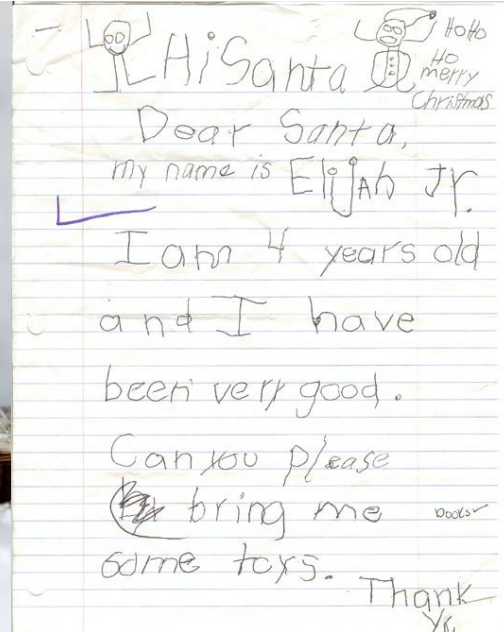 Hi Santa
HoHo
Ho
merry
Christmas
Dear Santa,
my name is Elijah Jr.
I am 4 years old
and I have
been very good.
Can you please
bring me
books
some toys.
Thank